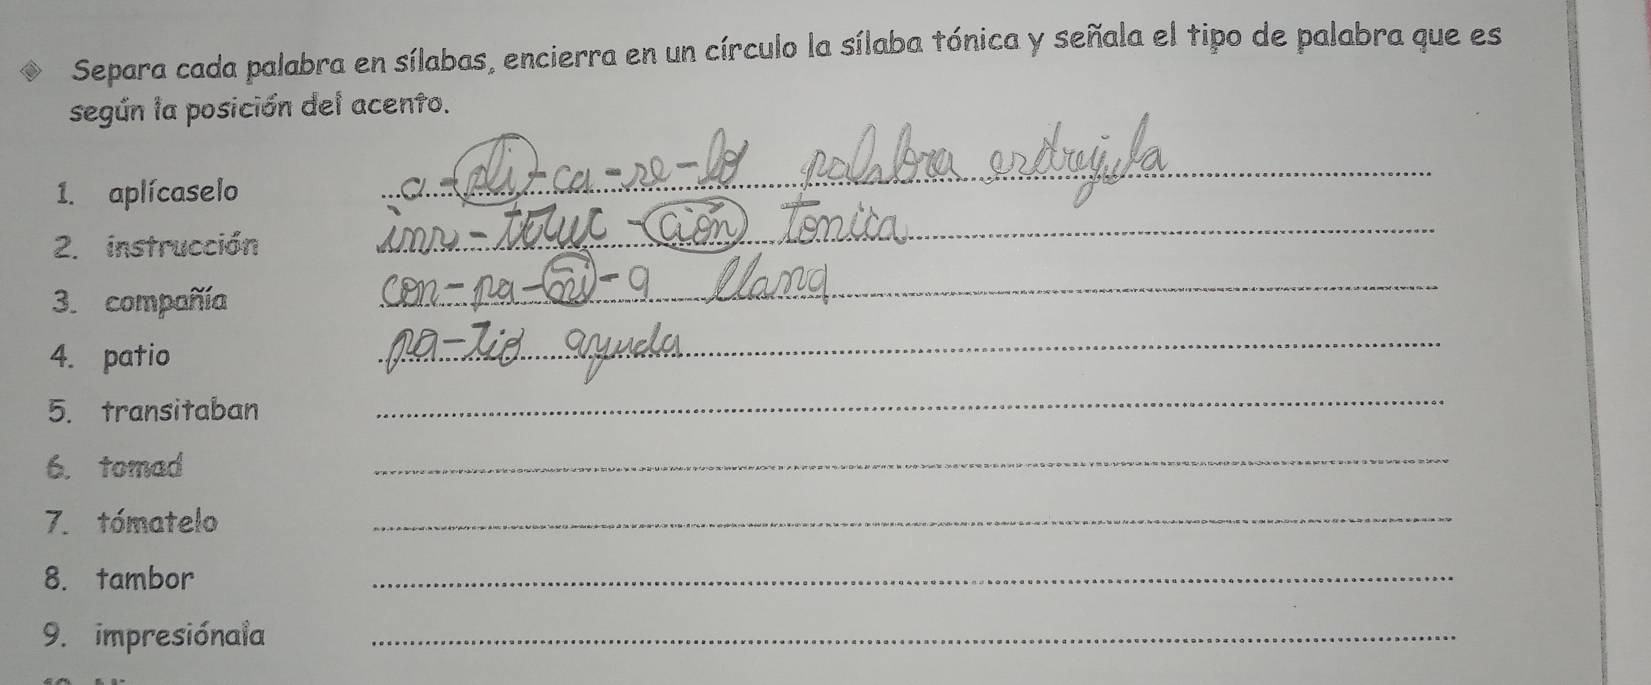 Separa cada palabra en sílabas, encierra en un círculo la sílaba tónica y señala el tipo de palabra que es
según la posición del acento.
1. aplícaselo a-pli-ca-se-lo palabra
2. instrucción ción tonica
3. compañía con-pa-ñi-a llana
4. patio pa-tio ayuda
5. transitaban
6. tomad
7. tómatelo
8. tambor
9. impresiónala